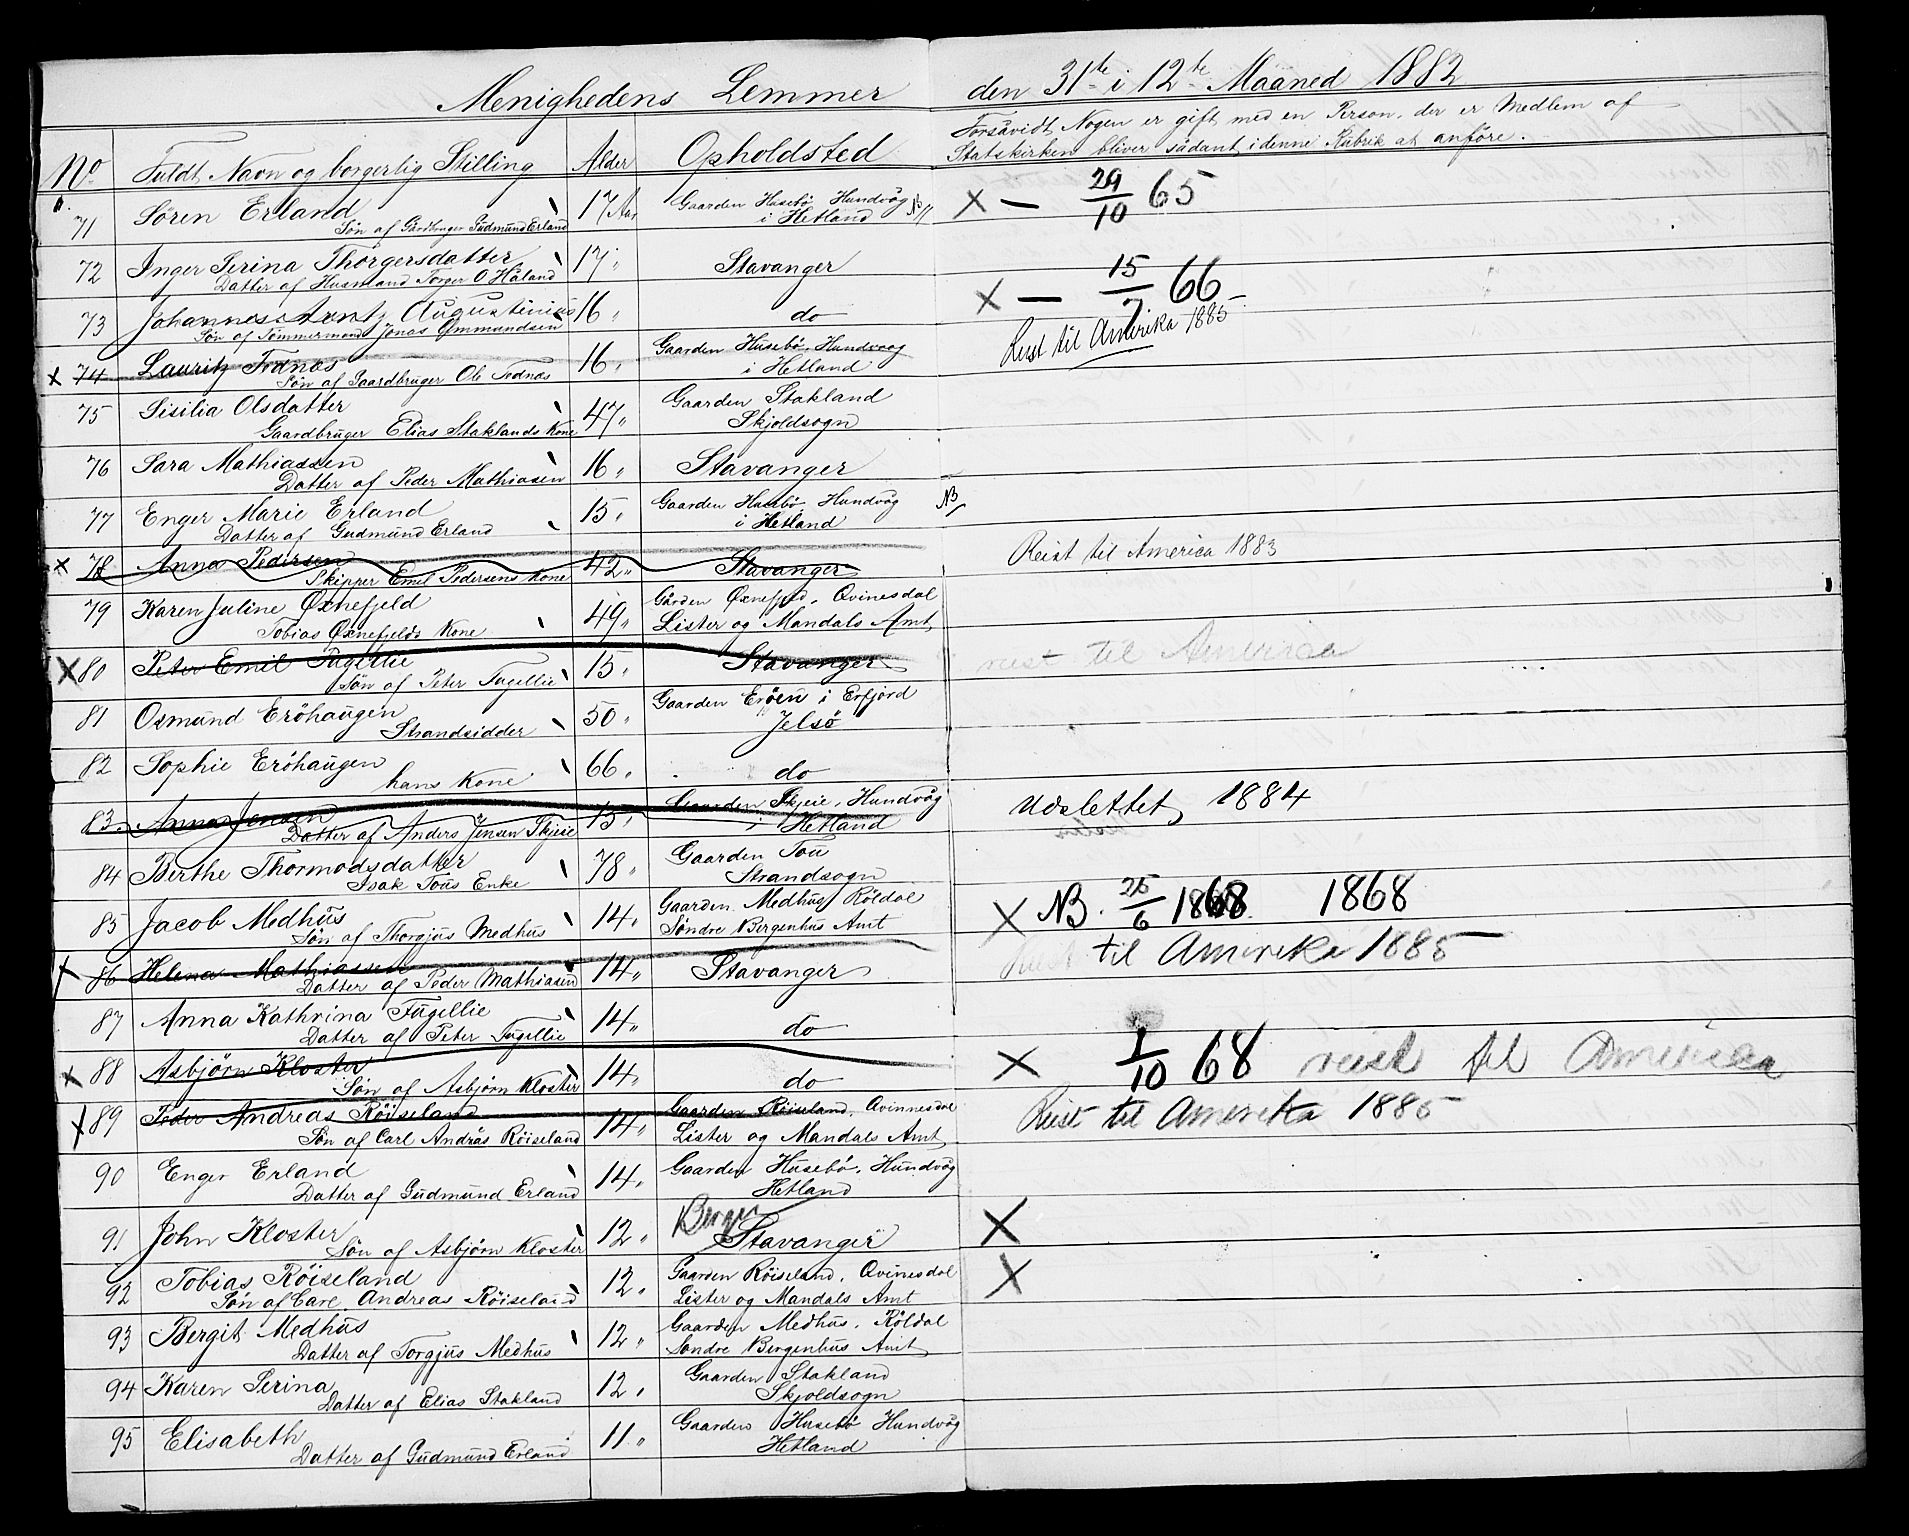 Menighedens Lemmer den 31te i 12te Mååned 1882
No Fuldt Navn og borgerlig Stilling Alder Opholdsted Forsåvidt Nogen er gift med en Person, der er Medlem af
Statskirken bliver sådant i denne Rubrik at anføre.
71 Søren Erland 17 Aar Gaarden Husebø Hundvåg NB X — 29/10 65
Søn af Gårdbruger Gudmund Erland i Hetland
72 Inger Serina Thorgersdatter 17 " Stavanger
Datter af Husmand Torger O Håland
X — 15/7 66
73 Johannes Arentz Augustinius 16 " do
Søn af Tømmermand Jonas Ommundsen
Reist til Amerika 1885
x 74 Lauritz Fodnæs 16 " Gaarden Husebø, Hundvaag
Søn af Gaardbruger Ole Fodnæs i Hetland
75 Sisilia Olsdatter 47 " Gaarden Stakland
Gaardbruger Elias Staklands Kone Skjoldsogn
76 Sara Mathiassen 16 " Stavanger
Datter af Peder Mathiasen
77 Enger Marie Erland 15 " Gaarden Husebø, Hundvåg NB
Datter af Gudmund Erland i Hetland
x 78 Anna Pedersen 42 " Stavanger Reist til America 1883
Skipper Emil Pedersens Kone
79 Karen Juline Øxnefjeld 49 " Gården Øxnefjed, Qvinesdal
Tobias Øxnefjelds Kone Lister og Mandals Amt
X 80 Peter Emil Fugellie 15 " Stavanger reist til America
Søn af Peter Fugellie
81 Osmund Erøhaugen 50 " Gaarden Erøen i Erfjord
Strandsidder Jelsø
82 Sophie Erøhaugen 66 " do
hans Kone
83 Anna Jensen 15 " Gaarden Skjeie, Hundvåg Udslettet 1884
Datter af Anders Jensen Skjeie i Hetland
84 Berthe Thormodsdatter 78 " Gaarden Tou
Isak Tous Enke Strandsogn
85 Jacob Medhus 14 " Gaarden Medhus, Røldal X NB. 25/6 1868 1868
Søn af Thorgjus Medhus Søndre Bergenhus Amt
x 86 Helena Mathiassen 14 " Stavanger Reist til Amerika 1885
Datter af Peder Mathiasen
87 Anna Kathrina Fugellie 14 " do
Datter af Peter Fugellie
x 88 Asbjørn Kloster 14 " do X 1/10 68 reist til America
Søn af Asbjørn Kloster
x 89 Peder Andreas Røiseland 14 " Gaarden Røiseland, Qvinnesdal Reist til Amerika 1885
Søn af Carl Andräs Röiseland Lister og Mandals Amt
90 Enger Erland 14 " Gaarden Husebø, Hundvåg
Datter af Gudmund Erland Hetland
Bergen
91 John Kloster 12 " Stavanger X
Søn af Asbjørn Kloster
92 Tobias Røiseland 12 " Gaarden Røiseland, Qvinesdal X
Søn af Carl Andreas Røiseland Lister og Mandals Amt
93 Bergit Medhus 12 " Gaarden Medhus, Røldal
Datter af Torgjus Medhus Søndre Bergenhus Amt
94 Karen Serina 12 " Gaarden Stakland
Datter af Elias Stakland Skjoldsogn
95 Elisabeth 11 " Gaarden Husebø Hundvåg
Datter af Gudmund Erland Hetland